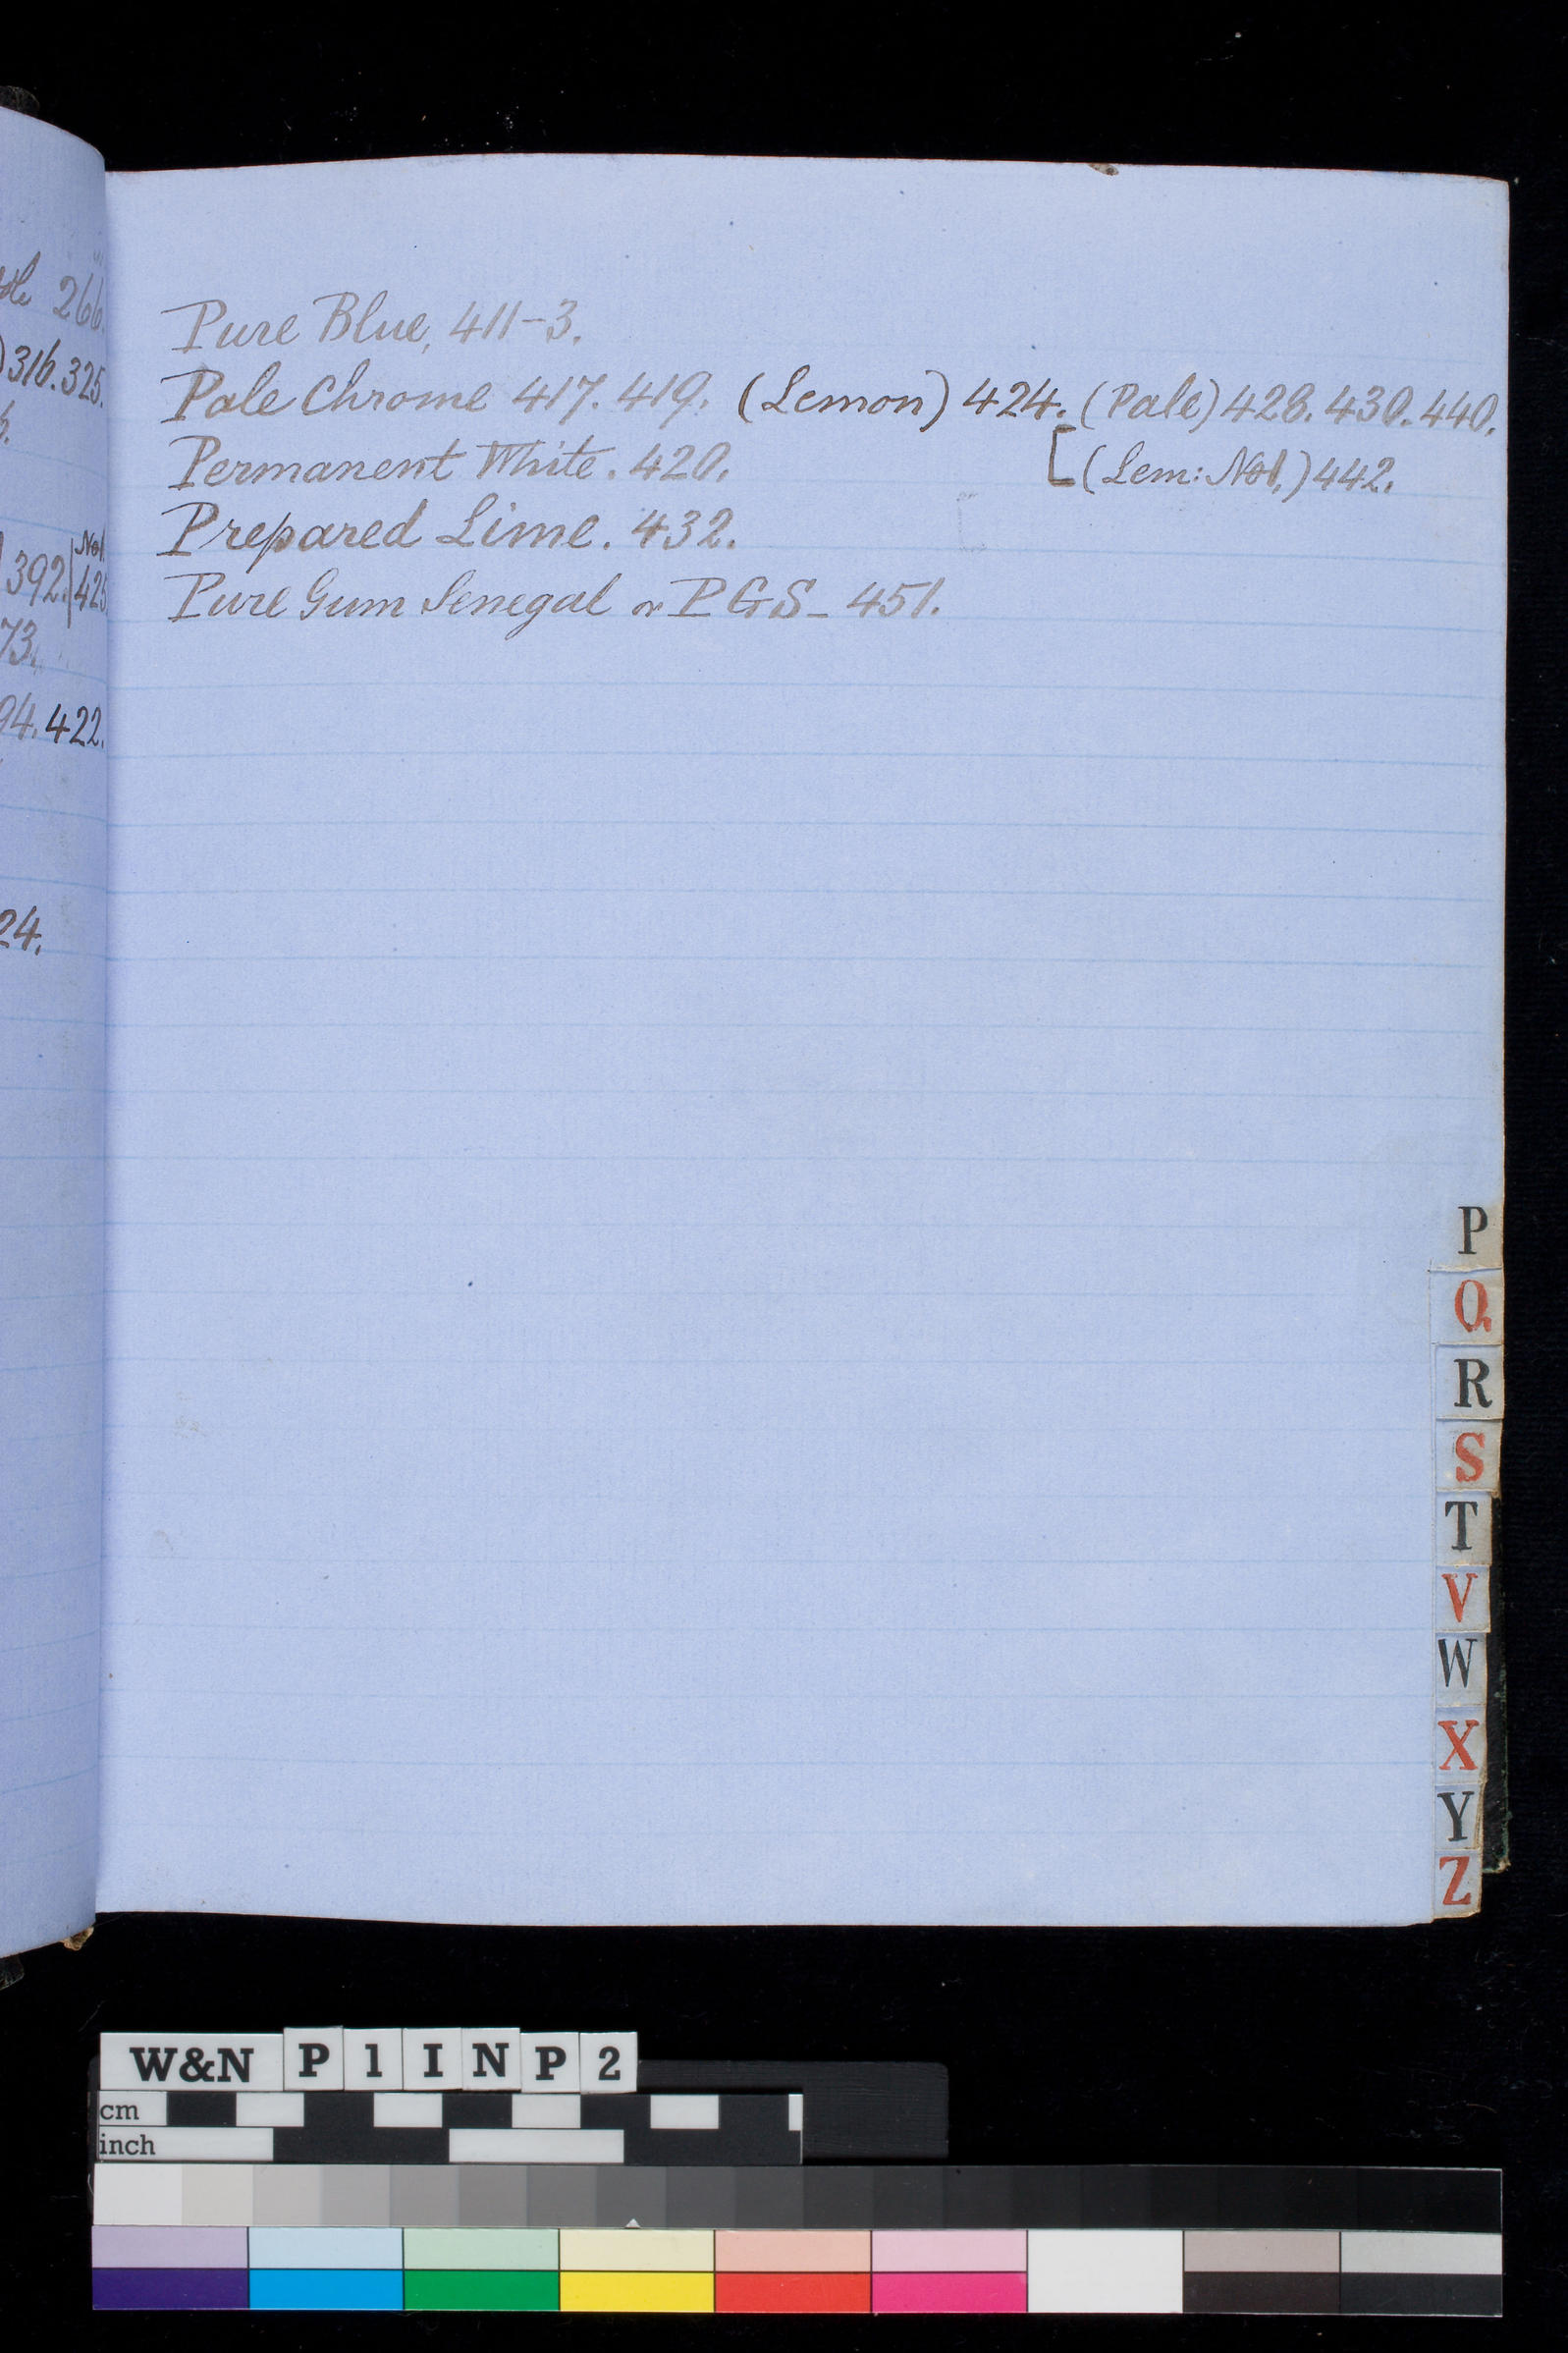 266.
316.325.
392. No1. 425
73.
94.422.
24.
Pure Blue, 411-3.
Pale Chrome 417. 419. (Lemon) 424. (Pale) 428. 430. 440.
Permanent White. 420. [(Lem: No1.) 442.
Prepared Lime. 432.
Pure Gum Senegal or PGS - 451.
P
Q
R
S
T
V
W
X
Y
Z
W&N P 1 I N P 2
cm
inch